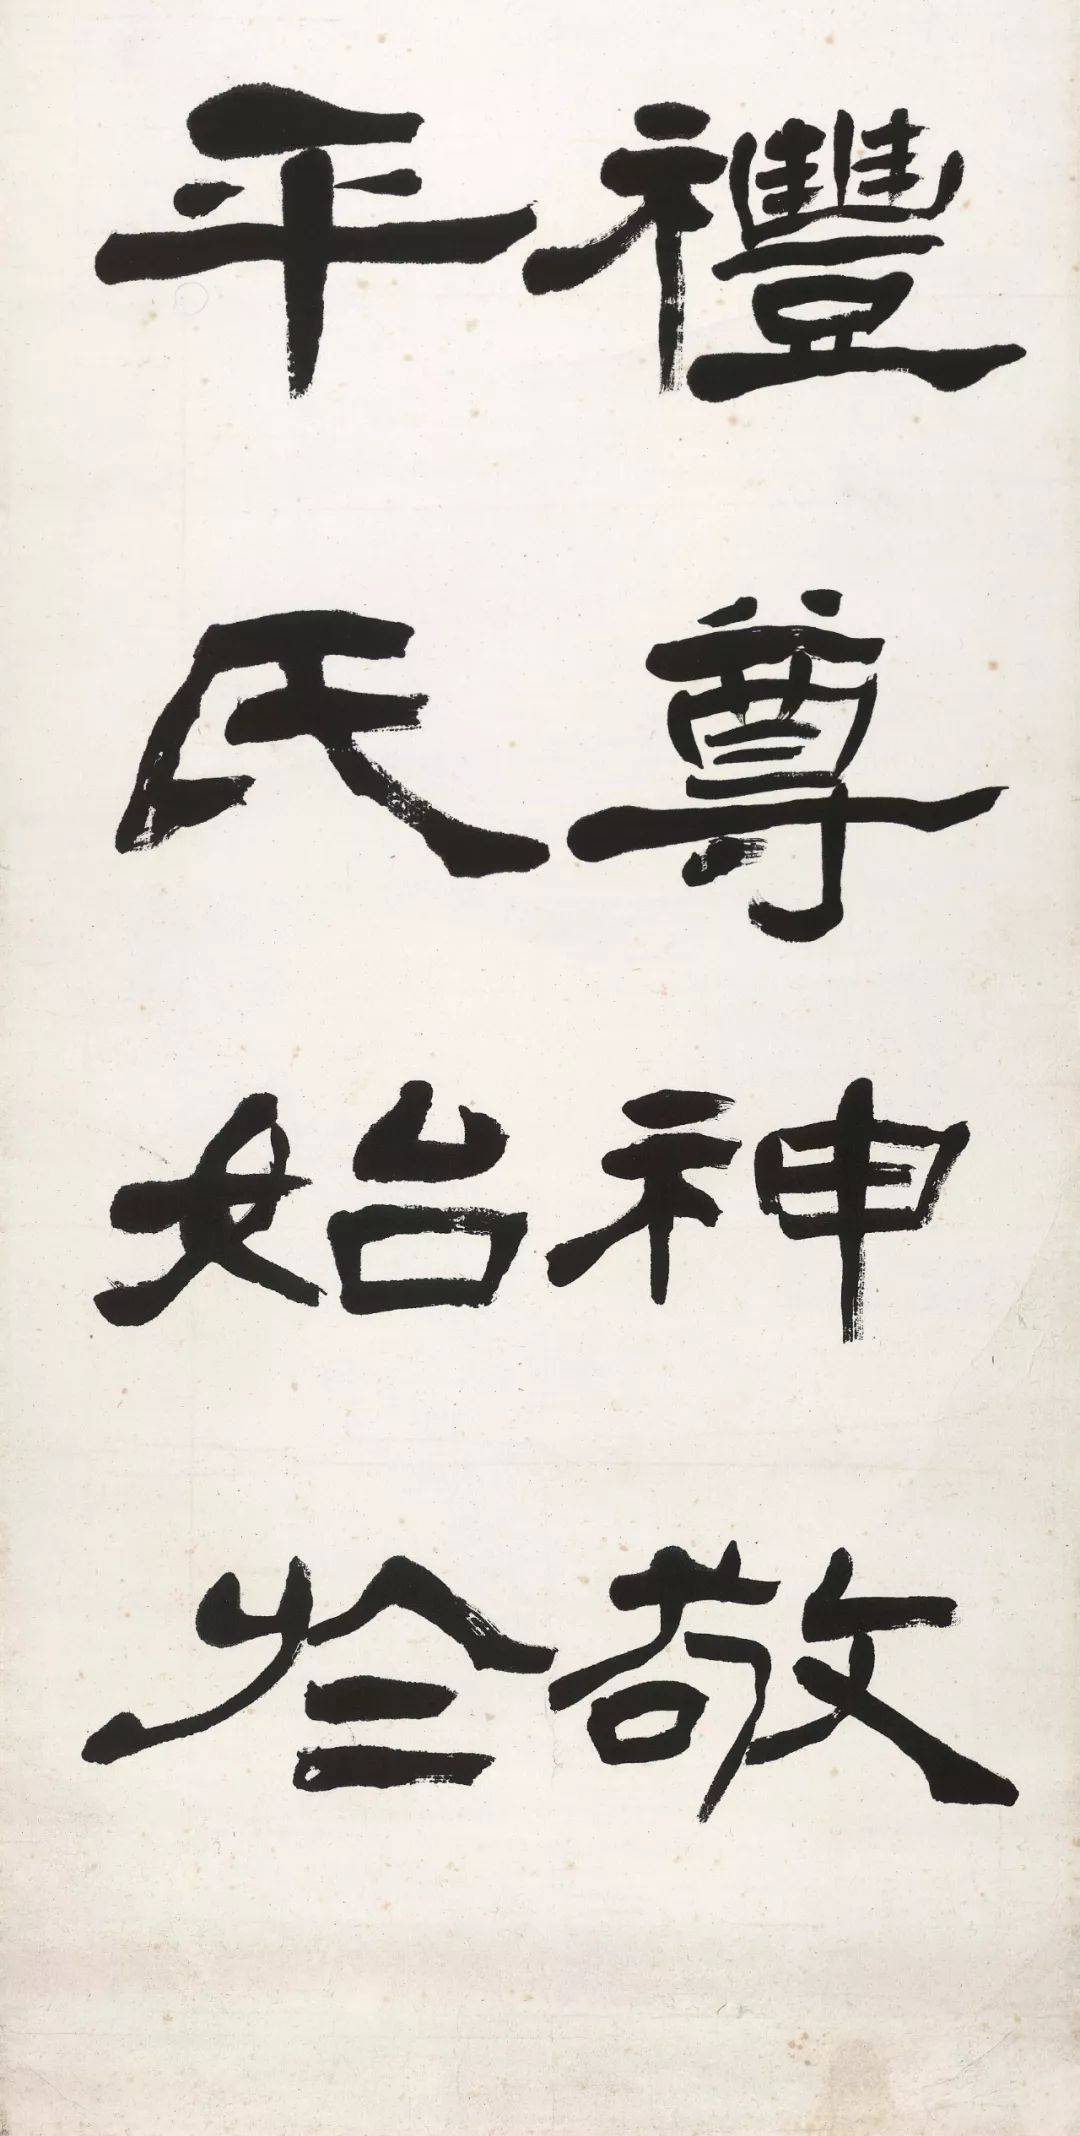 禮尊神敬
平氏始於